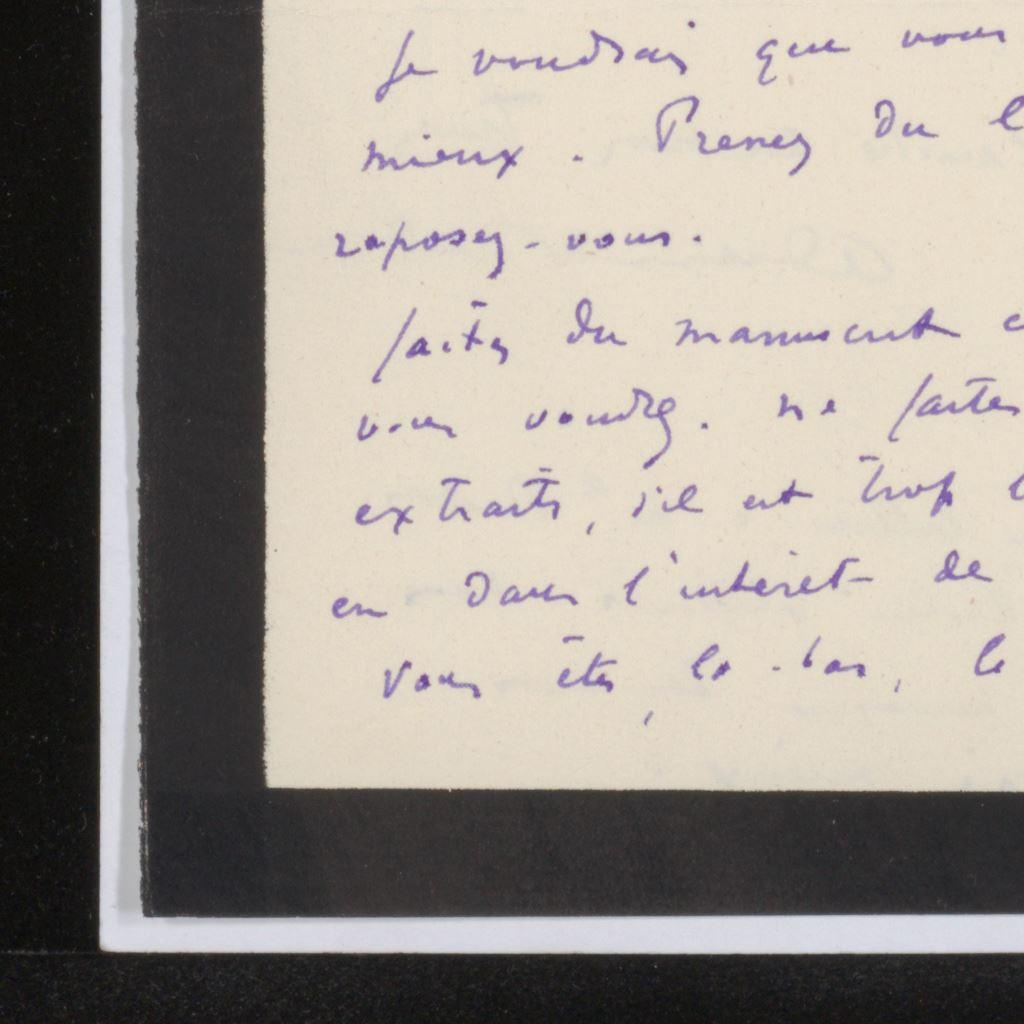 Je voudrais que vous
mieux. Prenez du
reposez-vous.
faites du manuscrit
vous voudrez. ne faites
extraits, s'il est trop
en dans l'intérêt de
Vous êtes là-bas, le